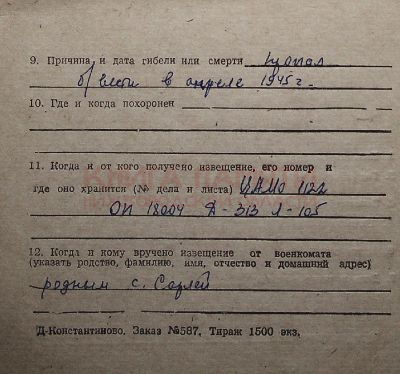 9. Причина и дата гибели или смерти пропал
б/вести в апреле 1945 г.
10. Где и когда похоронен
11. Когда и от кого получено извещение, его номер и
где оно хранится (№ дела и листа) ЦАМО 1122
ОП 18004 Д-313 Л-105
12. Когда и кому вручено извещение от военкомата
(указать родство, фамилию, имя, отчество и домашний адрес)
родным с. Сарлей
Д-Константиново. Заказ №587. Тираж 1500 экз.